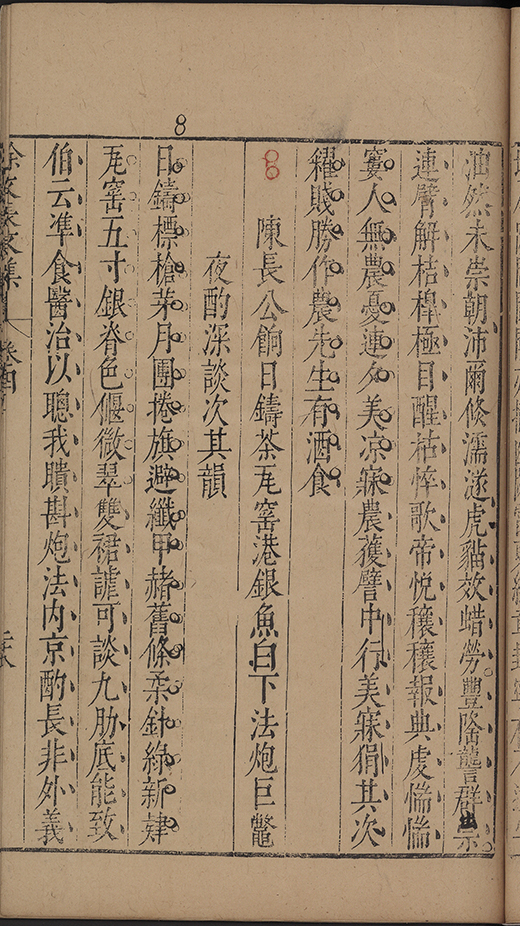 8
油然未崇朝沛爾倏濡遂虎貓效蜡勞豐隆讋群
連臂解桔槔極目醒枯悴歌帝悅穰穰報典虔惴惴
窶人無農憂連夕美凉寐農蒦譬中行美寐狷其次
糴賤勝作農先生有酒食
8
陳長公餉日鑄茶瓦窰港銀魚白下法炮巨鼈
夜酌深談次其韻
日鑄標槍茅月團捲旗避纖甲赭舊條柔針綠新肄
瓦窰五寸銀脊色偃微翠雙裙謔可談九肋底能致
伯云準食醫治以聰我瞶斟炮法内京酌長非外義